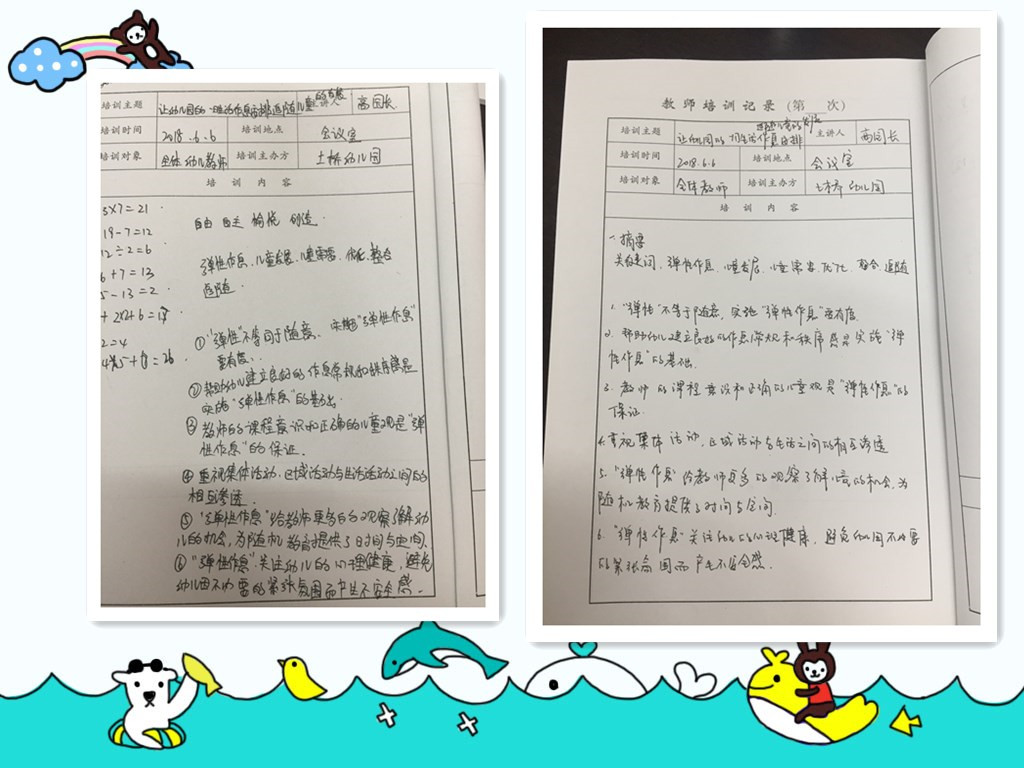 培训主题 让幼儿园的一日活动作息安排追随儿童的发展 讲人 高园长
培训时间 2018.6.6 培训地点 会议室
培训对象 全体幼儿教师 培训主办方 土桥幼儿园
培训内容
3×7=21
19-7=12
12÷2=6
6+7=13
5-13=2
+2×2+6=
2=4
5+
=26
自由 自主 愉悦 创造
弹性作息、儿童发展、儿童需要、优化、整合
追随
①“弹性”不等同于随意,实施“弹性作息”
要有度.
②帮助幼儿建立良好的作息常规和秩序感是
实施“弹性作息”的基础.
③教师的课程意识和正确的儿童观是“弹
性作息”的保证.
④重视集体活动、区域活动与生活活动之间的
相互渗透.
⑤“弹性作息”给教师更多的观察了解幼
儿的机会,为随机教育提供了时间与空间.
⑥“弹性作息”关注幼儿的心理健康,避免
幼儿因不必要的紧张氛围而产生不安全感.
教师培训记录(第 次)
培训主题 让幼儿园的一日生活作息安排追随儿童的发展 主讲人 高园长
培训时间 2018.6.6 培训地点 会议室
培训对象 全体教师 培训主办方 土桥幼儿园
培训内容
一、摘要
关键词、弹性作息、儿童发展、儿童需要、优化、整合、追随
1.“弹性”不等于随意,实施“弹性作息”要有度.
2.帮助幼儿建立良好的作息常规和秩序感是实施“弹
性作息”的基础.
3.教师的课程意识和正确的儿童观是“弹性作息”的
保证.
4.重视集体活动,区域活动与生活之间的相互渗透
5.“弹性作息”给教师更多的观察了解儿童的机会,为
随机教育提供了时间与空间.
6.“弹性作息”关注幼儿的心理健康,避免幼儿因不必要
的紧张氛围而产生不安全感.